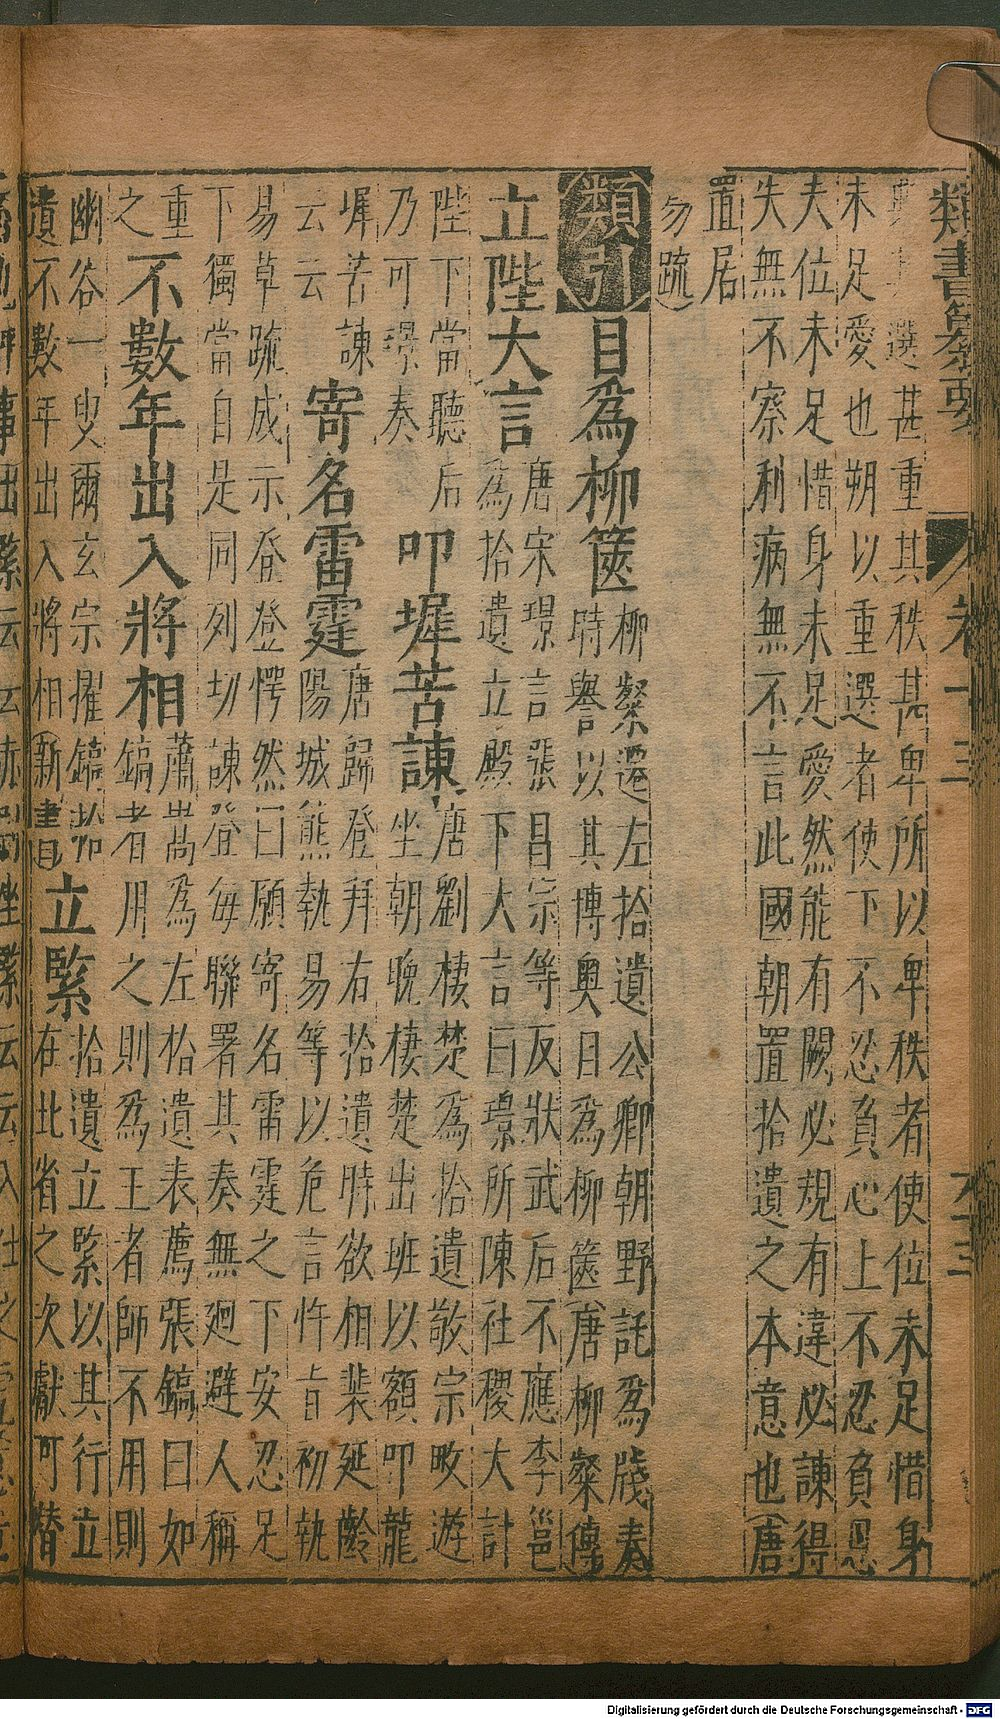 類書纂要 卷十三 六十三
選甚重其秩甚卑所以卑秩者使位未足惜身
未足愛也朔以重選者使下不忍負心上不忍負恩
夫位未足惜身未足愛然能有闕必規有違必諫得
失無不察利病無不言此國朝置拾遺之本意也(唐
置居
易疏)
類引
目為柳篋
柳粲遷左拾遺公卿朝野託為牋奏
時譽以其博奧目為柳篋(唐柳粲傳
立陛大言
唐宋璟言張昌宗等反狀武后不應李邕
為拾遺立殿下大言曰璟所陳社稷大計
陛下當聽后
乃可璟奏
叩墀苦諫
唐劉棲楚為拾遺敬宗畋遊
坐朝晚棲楚出班以額叩龍
墀苦諫
云云
寄名雷霆
唐歸登拜右拾遺時欲相裴延齡
陽城熊執易等以危言忤旨初執
易草疏成示登登愕然曰願寄名雷霆之下安忍足
下獨當自是同列切諫登每聯署其奏無廻避人稱
重
之
不數年出入將相
蕭嵩為左拾遺表薦張鎬曰如
鎬者用之則為王者師不用則
幽谷一叟爾玄宗擢鎬拾
遺不數年出入將相(新書)
立緊
拾遺立緊以其行立
在北省之次獻可替
Digitalisierung gefördert durch die Deutsche Forschungsgemeinschaft - DFG